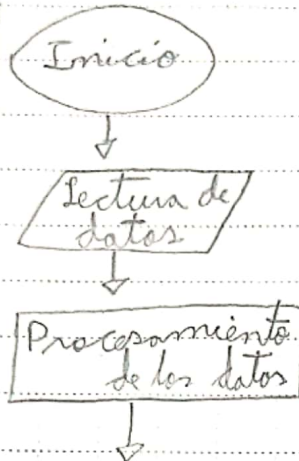 Inicio
Lectura de
datos
Procesamiento
de los datos